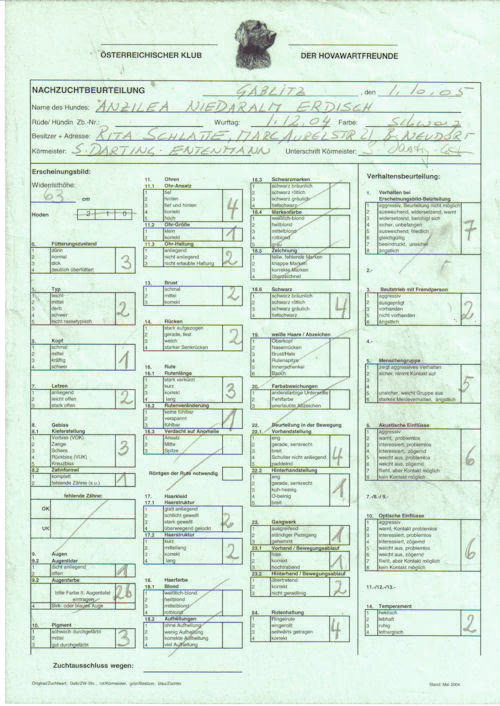 ÖSTERREICHISCHER KLUB DER HOVAWARTFREUNDE
NACHZUCHTBEURTEILUNG GABLITZ, den 1.10.05
Name des Hundes: ANZILEA NIEDARALM ERDISCH
Rüde/ Hündin Zb.-Nr.: Wurftag: 1.12.04 Farbe:
Besitzer + Adresse: RITA
Körmeister: S. DARTING-ENTENMANN Unterschrift Körmeister:
Erscheinungsbild:
Widerristhöhe:
63 cm
Hoden 2 1 0
6. Fütterungszustand
1 dünn
2 normal
3 dick
4 deutlich überfüttert
3
5. Typ
1 leicht
2 mittel
3 derb
4 schwer
5 nicht rassetypisch
2
6. Kopf
1 schmal
2 mittel
3 kräftig
4 schwer
1
7. Lefzen
1 anliegend
2 leicht offen
3 stark offen
2
8. Gebiss
8.1 Kieferstellung
1 Vorbiss (VOK)
2 Zange
3 Schere
4 Rückbiss (VUK)
5 Kreuzbiss
3
8.2 Zahnformel
1 komplett
2 fehlende Zähne (s.u.)
1
fehlende Zähne:
OK
UK
9. Augen
9.1 Augenlider
1 dicht anliegend
2 offen
1
9.2 Augenfarbe
bitte Farbe lt. Augentafel
eintragen
4 Birk- oder blaues Auge
2b
10. Pigment
1 schwach durchgefärbt
2 mittel
3 gut durchgefärbt
3
Zuchtausschluss wegen:
11. Ohren
11.1 Ohr-Ansatz
1 tief
2 hinten
3 tief und hinten
4 korrekt
5 hoch
4
11.2 Ohr-Größe
1 klein
2 korrekt
1
11.3 Ohr-Haltung
1 anliegend
2 nicht anliegend
3 nicht erlaubte Haltung
2
13. Brust
1 schmal
2 mittel
3 korrekt
2
14. Rücken
1 stark aufgezogen
2 gerade, fest
3 weich
4 starker Senkrücken
2
16. Rute
16.1 Rutenlänge
1 stark verkürzt
2 kurz
3 korrekt
4 lang
3
16.2 Rutenveränderung
1 keine fühlbar
2 verspannt
3 fühlbar
1
16.3 Verdacht auf Anomalie
1 Ansatz
2 Mitte
3 Spitze
Röntgen der Rute notwendig
17. Haarkleid
17.1 Haarstruktur
1 glatt anliegend
2 schlicht gewellt
3 stark gewellt
4 überwiegend gelockt
2
17.2 Haarstruktur
1 kurz
2 mittellang
3 korrekt
4 lang
2
18. Haarfarbe
18.1 Blond
1 weißlich-blond
2 hellblond
3 mittelblond
4 rotblond
18.2 Aufhellungen
1 ohne Aufhellung
2 wenig Aufhellung
3 korrekte Aufhellung
4 viel Aufhellung
18.3 Schwarzmarken
1 schwarz bräunlich
2 schwarz rötlich
3 schwarz gräulich
4 tiefschwarz
18.4 Markenfarbe
1 weißlich-blond
2 hellblond
3 mittelblond
4 rotblond
5 grau
18.5 Zeichnung
1 teilw. fehlende Marken
2 knappe Marken
3 korrekte Marken
4 überzeichnet
18.6 Schwarz
1 schwarz bräunlich
2 schwarz rötlich
3 schwarz gräulich
4 tiefschwarz
4
19. weiße Haare / Abzeichen
1 Oberkopf
2 Nasenrücken
3 Brust/Hals
4 Rutenspitze
5 Innenschenkel
6 Bauch
20. Farbabweichungen
1 andersfarbige Unterwolle
2 Fehlfarbe
3 unerlaubte Abzeichen
22. Beurteilung in der Bewegung
22.1 Vorhandstellung
1 eng
2 gerade, senkrecht
3 breit
4 Schulter nicht anliegend
5 paddelnd
4
22.2 Hinterhandstellung
1 eng
2 gerade, senkrecht
3 kuh-hessig
4 O-beinig
5 breit
1
23. Gangwerk
1 ausgreifend
2 ständiger Passgang
3 gehemmt
1
23.1 Vorhand / Bewegungsablauf
1 lose
2 korrekt
3 hochtrabend
1
23.2 Hinterhand / Bewegungsablauf
1 übertretend
2 korrekt
3 nicht geradlinig
2
24. Rutenhaltung
1 Ringelrute
2 eingerollt
3 seitwärts getragen
4 korrekt
4
Verhaltensbeurteilung:
1. Verhalten bei
Erscheinungsbild-Beurteilung
1 aggressiv, Beurteilung nicht möglich
2 ausweichend, widersetzend, warnt
3 widersetzend, beruhigt sich
4 sicher, unbefangen
5 ausweichend, friedlich
6 gleichgültig
7 beeindruckt, unsicher
8 ängstlich
7
2.-
3. Beutetrieb mit Fremdperson
1 aggressiv
2 ausgeprägt
3 vorhanden
4 nicht vorhanden
5 ängstlich
2
4.-
5. Menschengruppe
1 zeigt aggressives Verhalten
2 sicher, nimmt Kontakt auf
5 unsicher, weicht Gruppe aus
6 starkes Meideverhalten, ängstlich
5
6. Akustische Einflüsse
1 aggressiv
2 warnt, problemlos
3 interessiert, problemlos
4 interessiert, zögernd
5 weicht aus, problemlos
6 weicht aus, zögernd
7 flieht, aber Kontakt möglich
8 kein Kontakt möglich
6
7.-/8.-/ 9.-
10. Optische Einflüsse
1 aggressiv
2 warnt, Kontakt problemlos
3 interessiert, problemlos
4 interessiert, zögernd
5 weicht aus, problemlos
6 weicht aus, zögernd
7 flieht, aber Kontakt möglich
8 kein Kontakt möglich
6
11.-/12.-/13.-
14. Temperament
1 hektisch
2 lebhaft
3 ruhig
4 lethargisch
2
Stand: Mai 2004